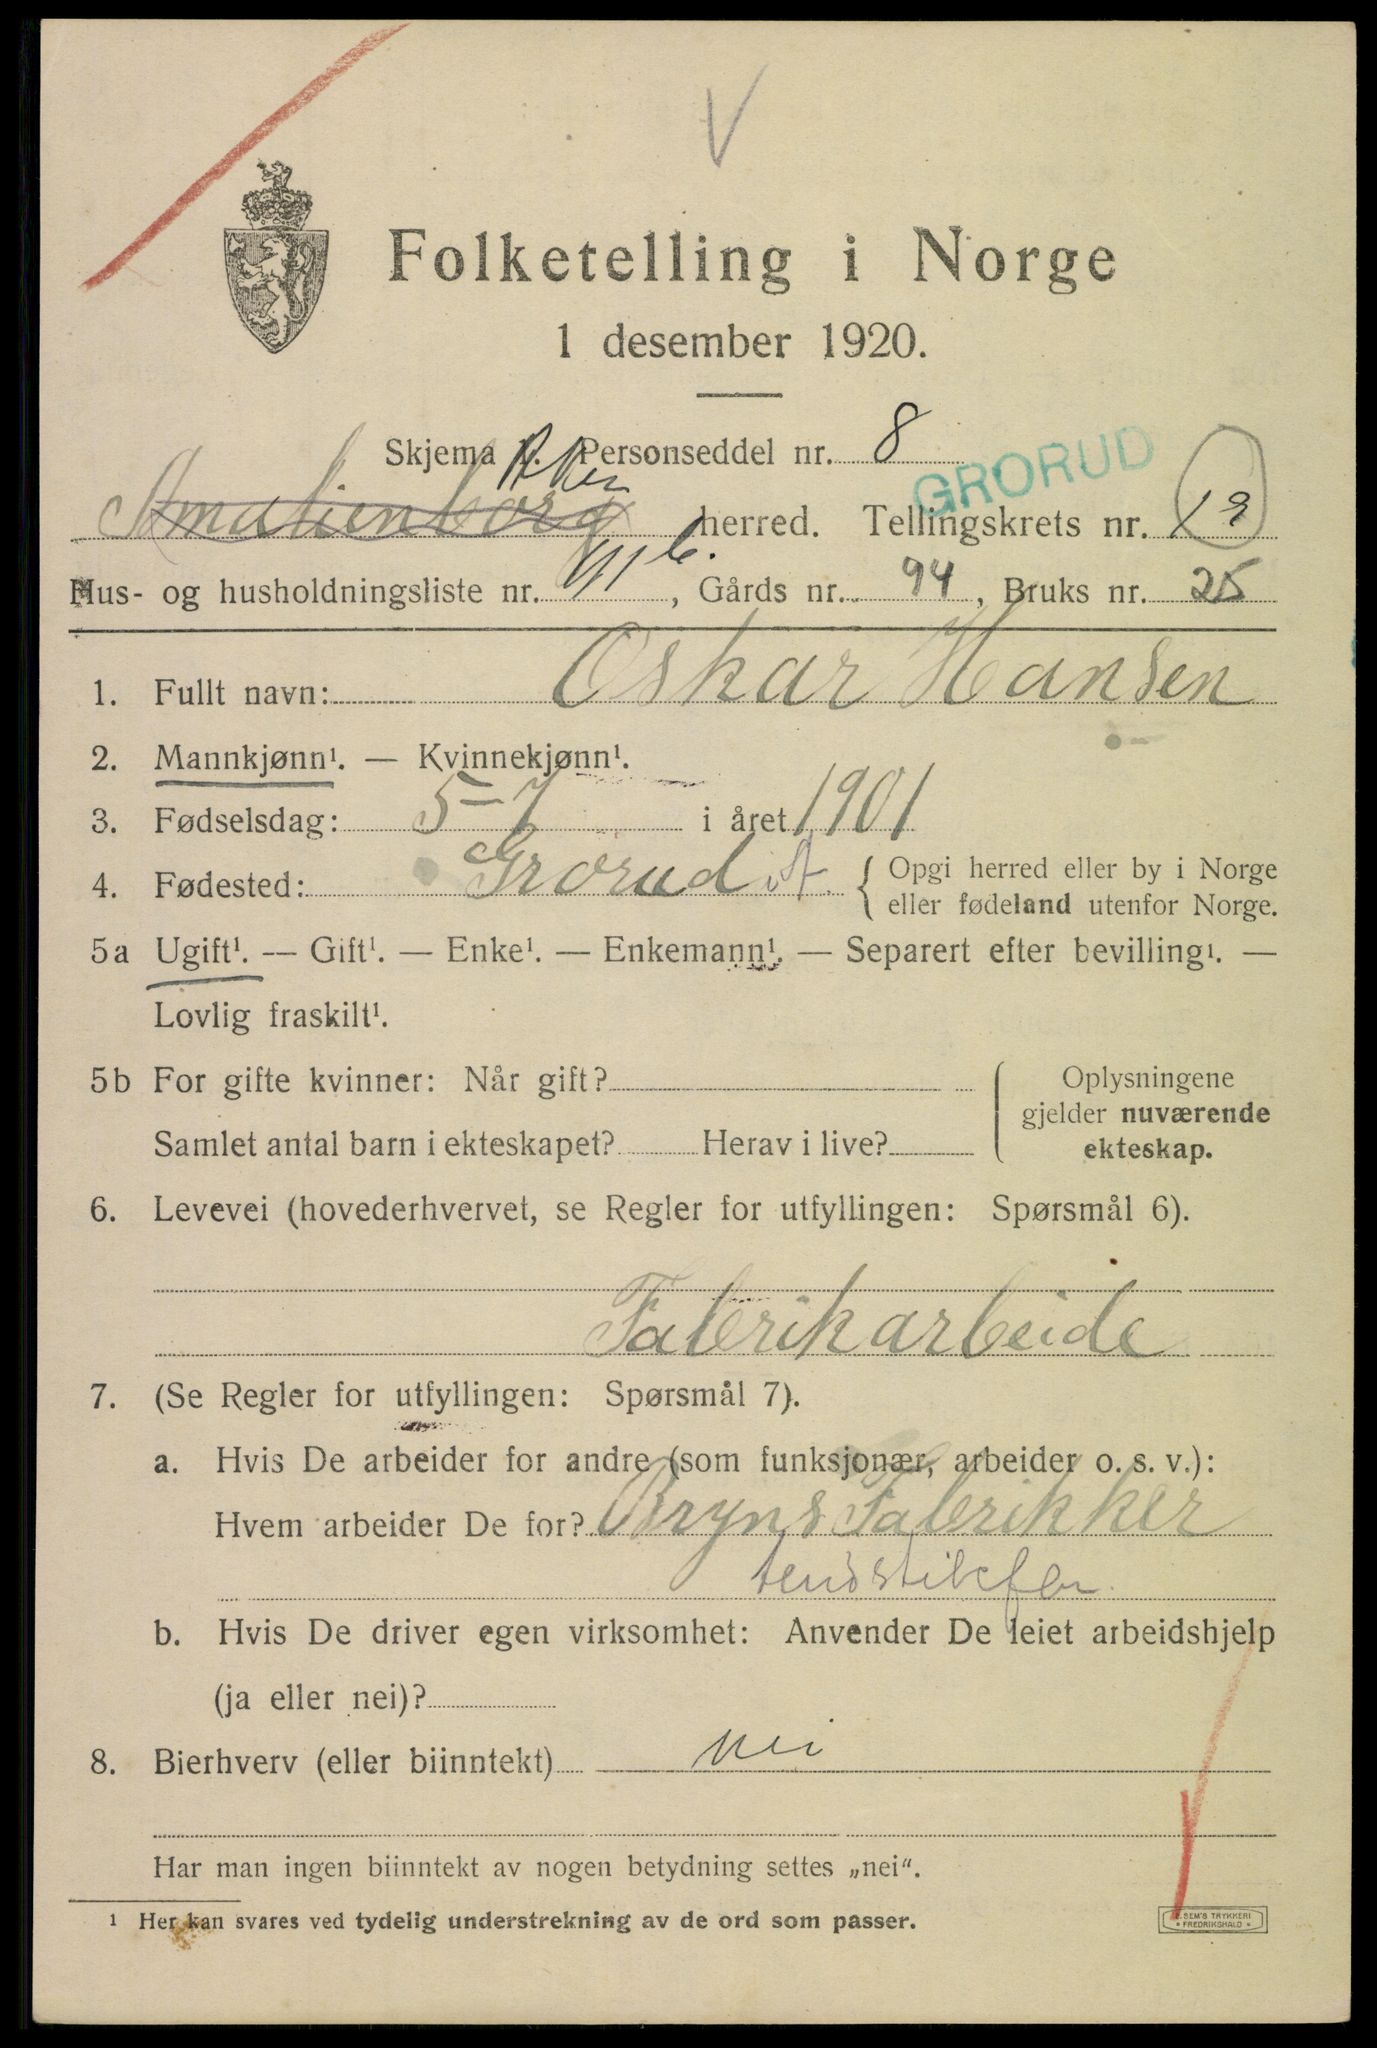 Folketelling i Norge
1 desember 1920.
Skjema 1. Personseddel nr. 8
GRORUD
Aker
Amalienborg herred. Tellingskrets nr. 19
Hus- og husholdningsliste nr. 41 b., Gårds nr. 94, Bruks nr. 25
1. Fullt navn: Oskar Hansen
2. Mannkjønn¹. — Kvinnekjønn¹.
3. Fødselsdag: 5-7 i året 1901
4. Fødested: Grorud A. { Opgi herred eller by i Norge
eller fødeland utenfor Norge.
5a Ugift¹. — Gift¹. — Enke¹. — Enkemann¹. — Separert efter bevilling¹. —
Lovlig fraskilt¹.
5b For gifte kvinner: Når gift?
Samlet antal barn i ekteskapet? Herav i live?
Oplysningene
gjelder nuværende
ekteskap.
6. Levevei (hovederhvervet, se Regler for utfyllingen: Spørsmål 6).
Fabrikarbeide
7. (Se Regler for utfyllingen: Spørsmål 7).
a. Hvis De arbeider for andre (som funksjonær, arbeider o. s. v.):
Hvem arbeider De for? Bryns Fabrikker
b. Hvis De driver egen virksomhet: Anvender De leiet arbeidshjelp
(ja eller nei)?
8. Bierhverv (eller biinntekt) nei
Har man ingen biinntekt av nogen betydning settes „nei“.
¹ Her kan svares ved tydelig understrekning av de ord som passer.
SEM'S TRYKKERI
FREDRIKSHALD